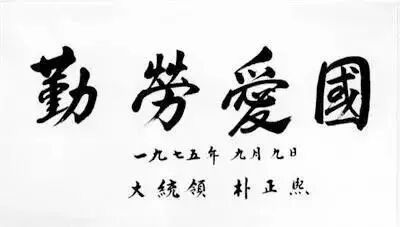 勤勞愛國
一九七五年 九月九日
大統領 朴正熙